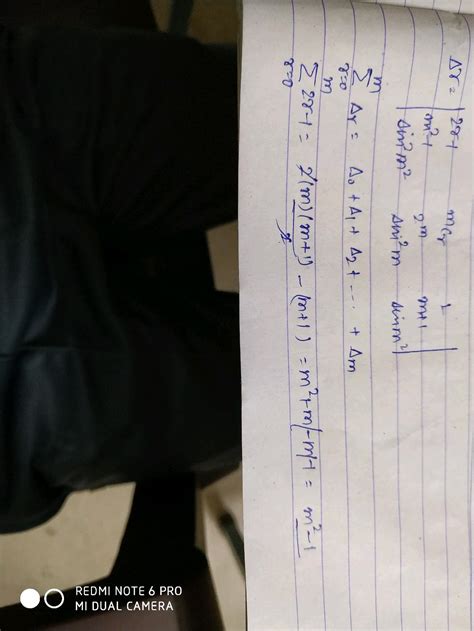 Δr = | 2r-1 mCr 1 |
| m²-1 2^m m+1 |
| sin²m² sin²m sinm² |
m
Σ Δr = Δ0 + Δ1 + Δ2 + .... + Δm
r=0
m
Σ 2r-1 = 2(m)(m+1)/2 - (m+1) = m²+m-m-1 = m²-1
r=0
REDMI NOTE 6 PRO
MI DUAL CAMERA